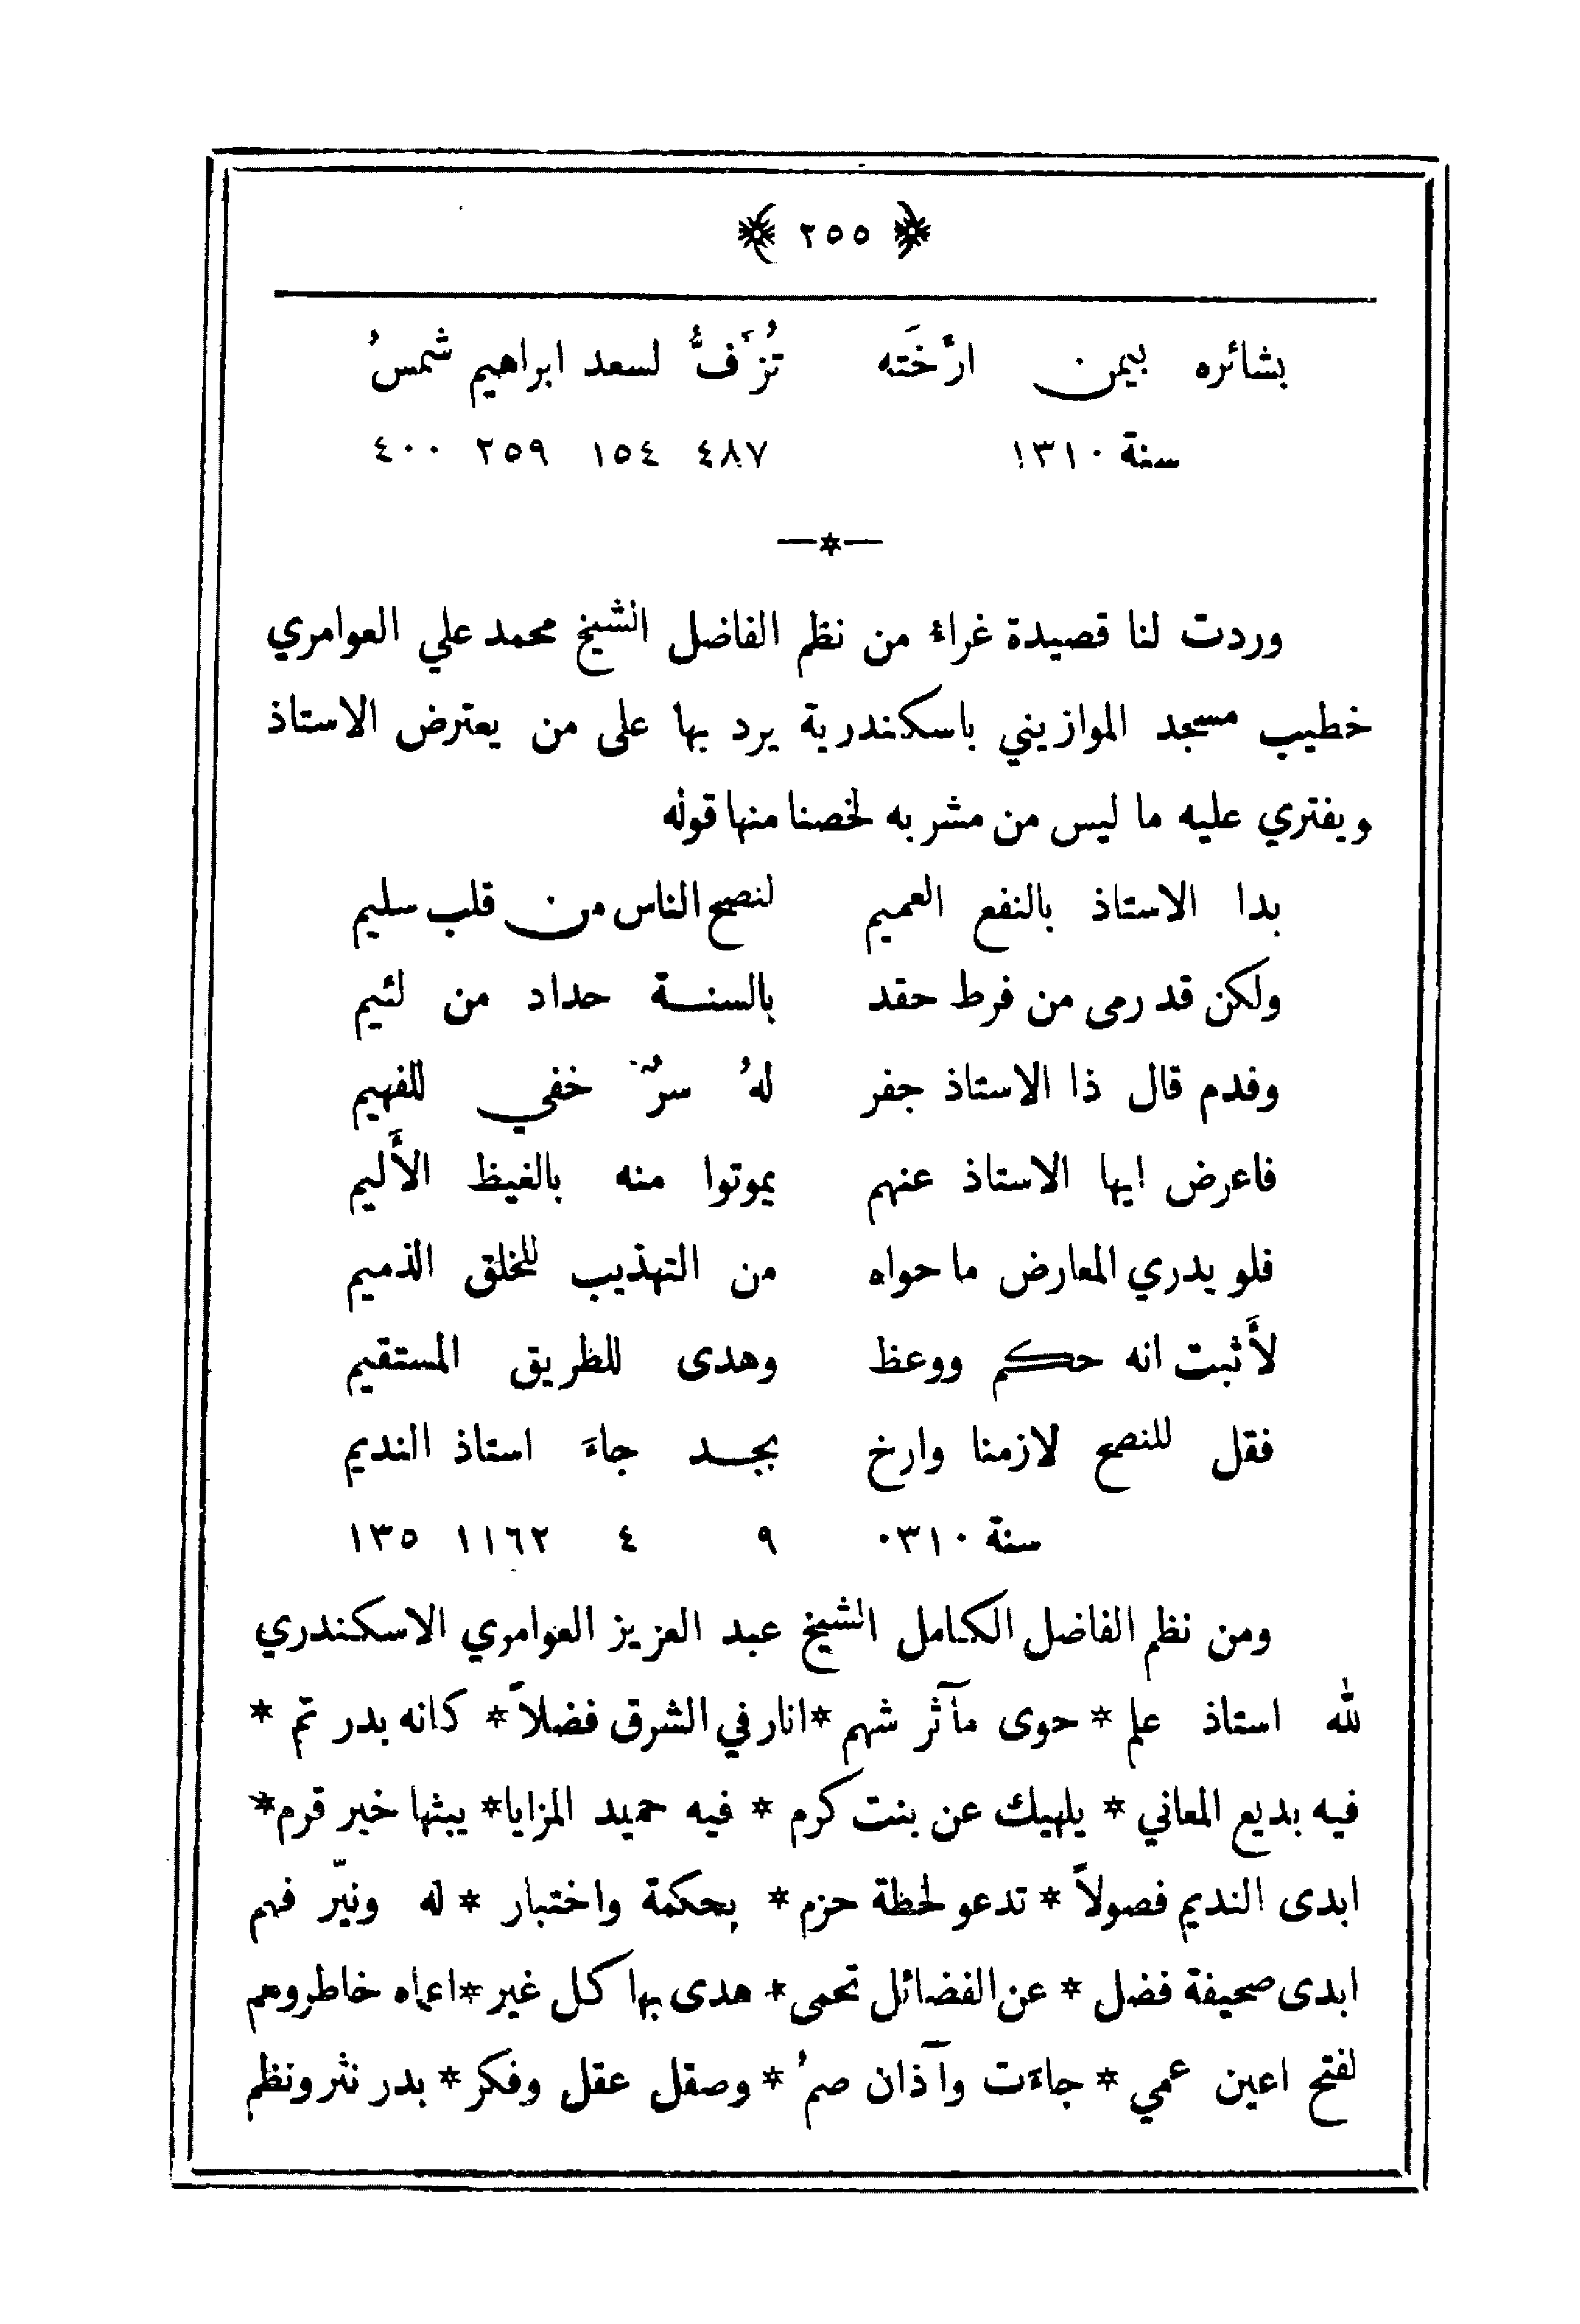 ٢٥٥
بشائره بيمن ارَّخَته تُزَفُّ لسعد ابراهيم شمسُ
سنة ١٣١٠ ٤٨٧ ١٥٤ ٢٥٩ ٤٠٠
وردت لنا قصيدة غراء من نظم الفاضل الشيخ محمد علي العوامري
خطيب مسجد الموازيني باسكندرية يرد بها على من يعترض الاستاذ
ويفتري عليه ما ليس من مشربه لخصنا منها قوله
بدا الاستاذ بالنفع العميم لنصح الناس من قلب سليم
ولكن قد رمى من فرط حقد بالسنة حداد من لئيم
وفدم قال ذا الاستاذ جفر لهُ سرٌّ خفي للفهيم
فاعرض ايها الاستاذ عنهم يموتوا منه بالغيظ الأَليم
فلو يدري المعارض ما حواه من التهذيب للخلق الذميم
لأَثبت انه حكم ووعظ وهدى للطريق المستقيم
فقل للنصح لازمنا وارخ بجد جاءَ استاذ النديم
سنة ٠٣١٠ ٩ ٤ ١١٦٢ ١٣٥
ومن نظم الفاضل الكامل الشيخ عبد العزيز العوامري الاسكندري
لله استاذ علم * حوى مآثر شهم * انار في الشرق فضلاً * كانه بدر تم *
فيه بديع المعاني * يلهيك عن بنت كرم * فيه حميد المزايا * يبثها خير قرم *
ابدى النديم فصولاً * تدعو لحظة حزم * بحكمة واختبار * له ونيّر فهم
ابدى صحيفة فضل * عن الفضائل تحمى * هدى بها كل غير * اعماه خاطر وهم
لفتح اعين عمي * جاءَت وآذان صمُ * وصقل عقل وفكر * بدر نثر ونظم